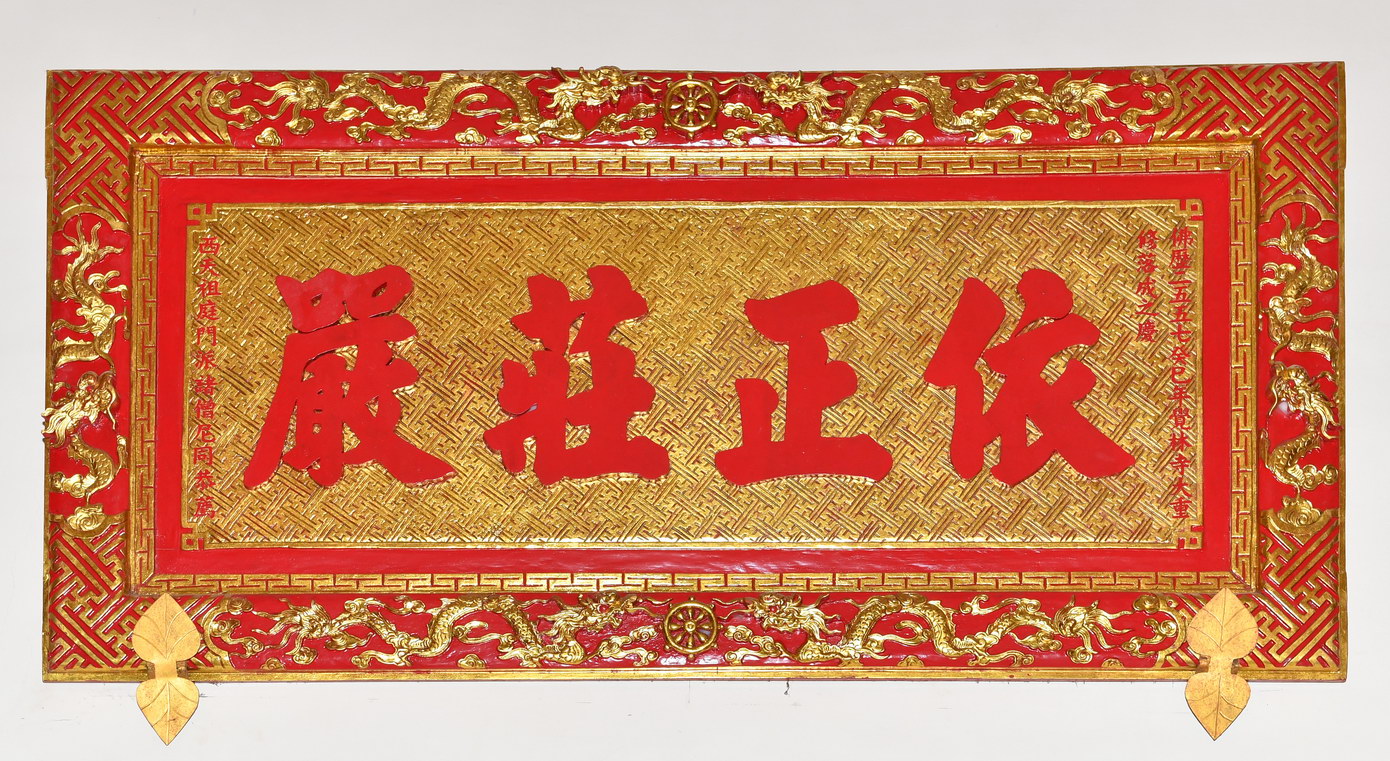 佛曆二五五七癸巳年覺林寺大重
修落成之慶
依正莊嚴
西天祖庭門派諸僧尼同恭薦